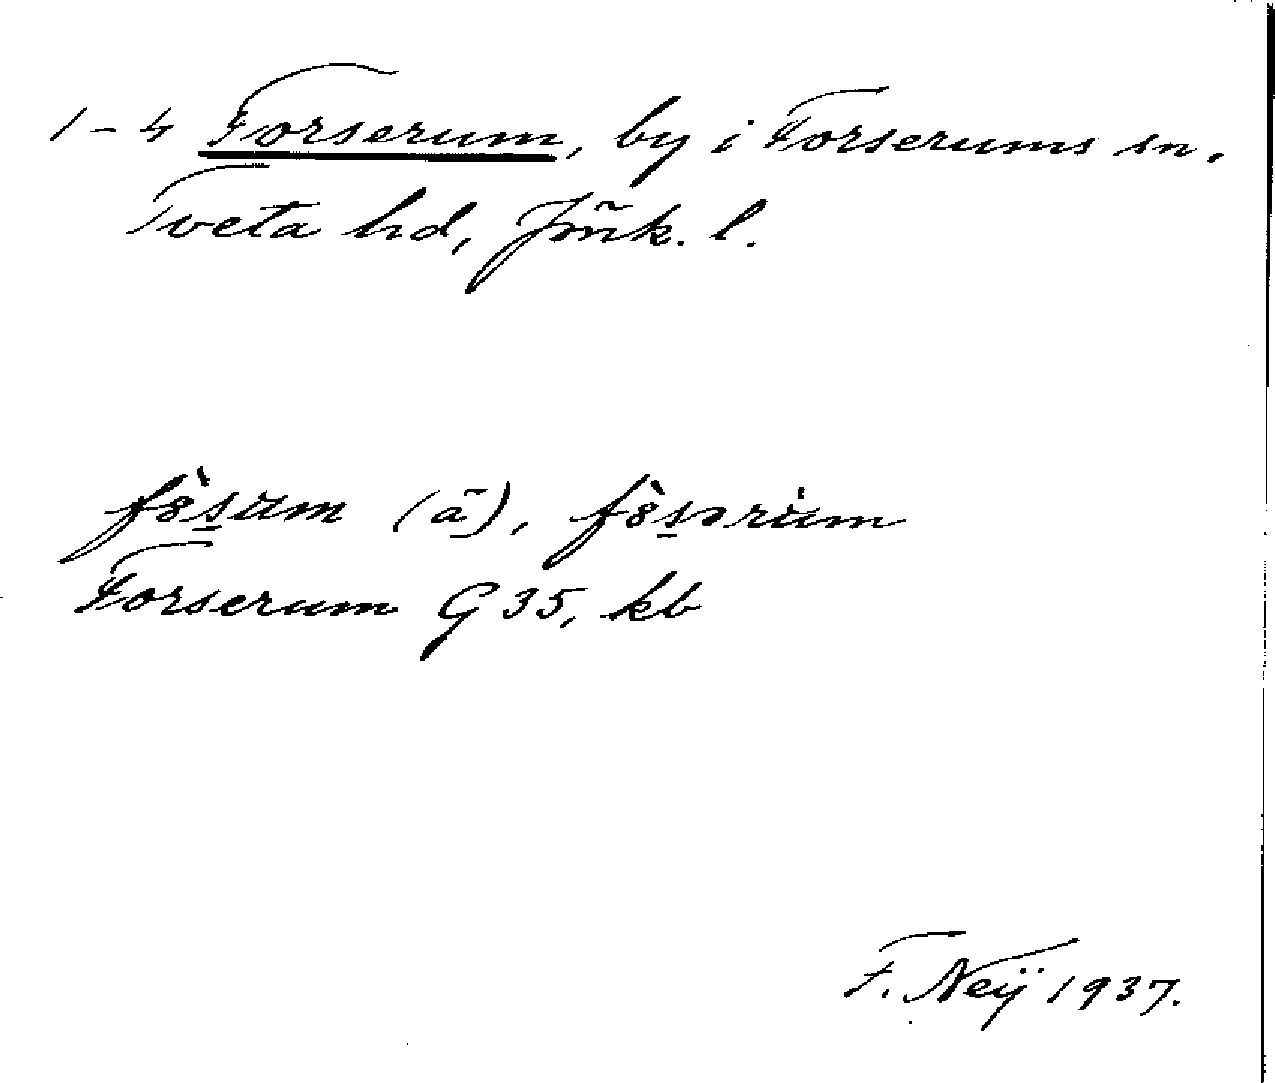 1-4 Forserum, by i Forserums sn.
Tveta hd, Jönk. l.
fò̀s̲um (ā), fò̀s̲ərùm
Forserum G 35, kb
F. Neÿ 1937.